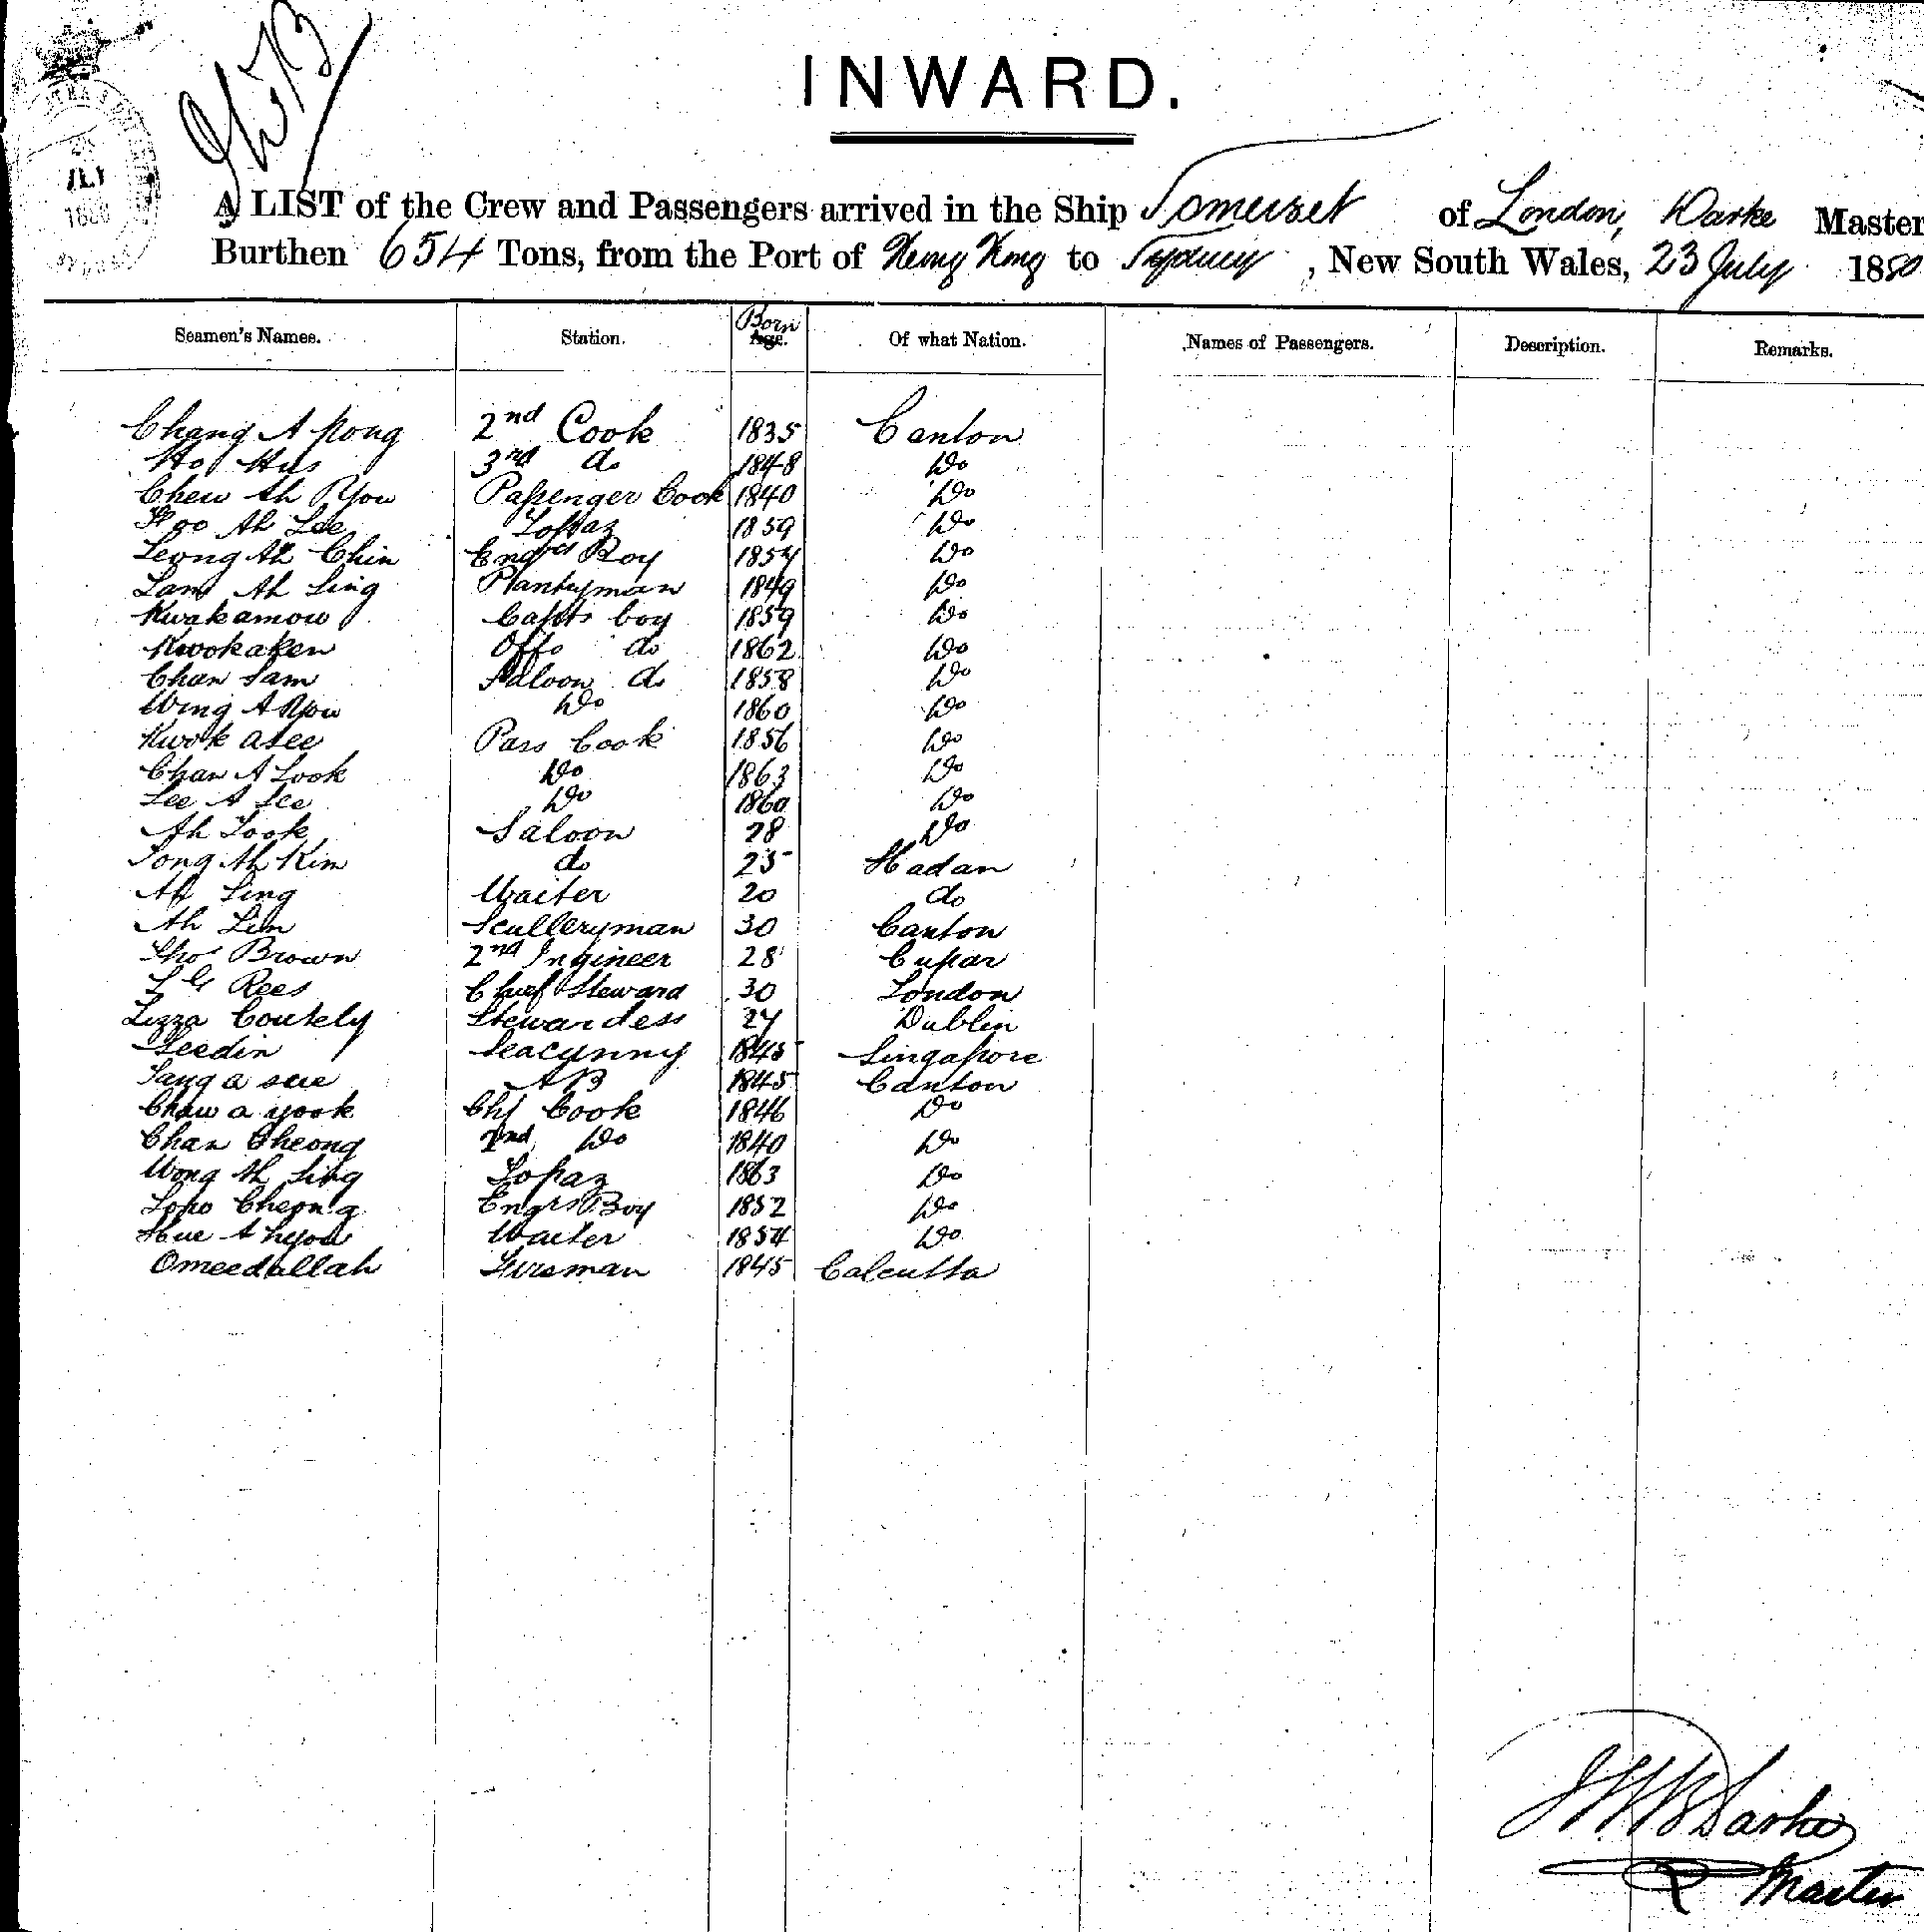 INWARD.
A LIST of the Crew and Passengers arrived in the Ship Somerset of London, Darke Master
Burthen 654 Tons, from the Port of Hong Kong to Sydney, New South Wales, 23 July 1880
Seamen's Names. Station. Born Age. Of what Nation. Names of Passengers. Description. Remarks.
Chang A Kong 2nd Cook 1835 Canton
Ho Hus 3rd do 1848 Do
Chew Ah You Passenger Cook 1840 Do
Ah Lee Topaz 1859 Do
Leong Ah Chin Engrs Boy 1854 Do
Lam Ah Sing Pantryman 1849 Do
Kwakamow Capts boy 1859 Do
Kwokaken Offs do 1862 Do
Chan Sam Saloon do 1858 Do
Wing A You Do 1860 Do
Kwok asee Pass Cook 1856 Do
Chan A Look Do 1863 Do
Lee A See Do 1860 Do
Ah Took Saloon 28 Do
Tong Ah Kim do 25 Hadan
Ah Sing Waiter 20 do
Ah Lim Sculleryman 30 Canton
Thos Brown 2nd Ingineer 28 Cupar
Rees Chief Steward 30 London
Lizza Coutely Stewardess 24 Dublin
Seedin Seacunny 1845 Singapore
Sang a sue AB 1845 Canton
Chaw a yook Chf Cook 1846 Do
Chan Cheong 2nd Do 1840 Do
Wong Ah Sing Topaz 1863 Do
Cheong Engrs Boy 1852 Do
Hue A Waiter 1854 Do
Omeedallah Fireman 1845 Calcutta
Darke
Master